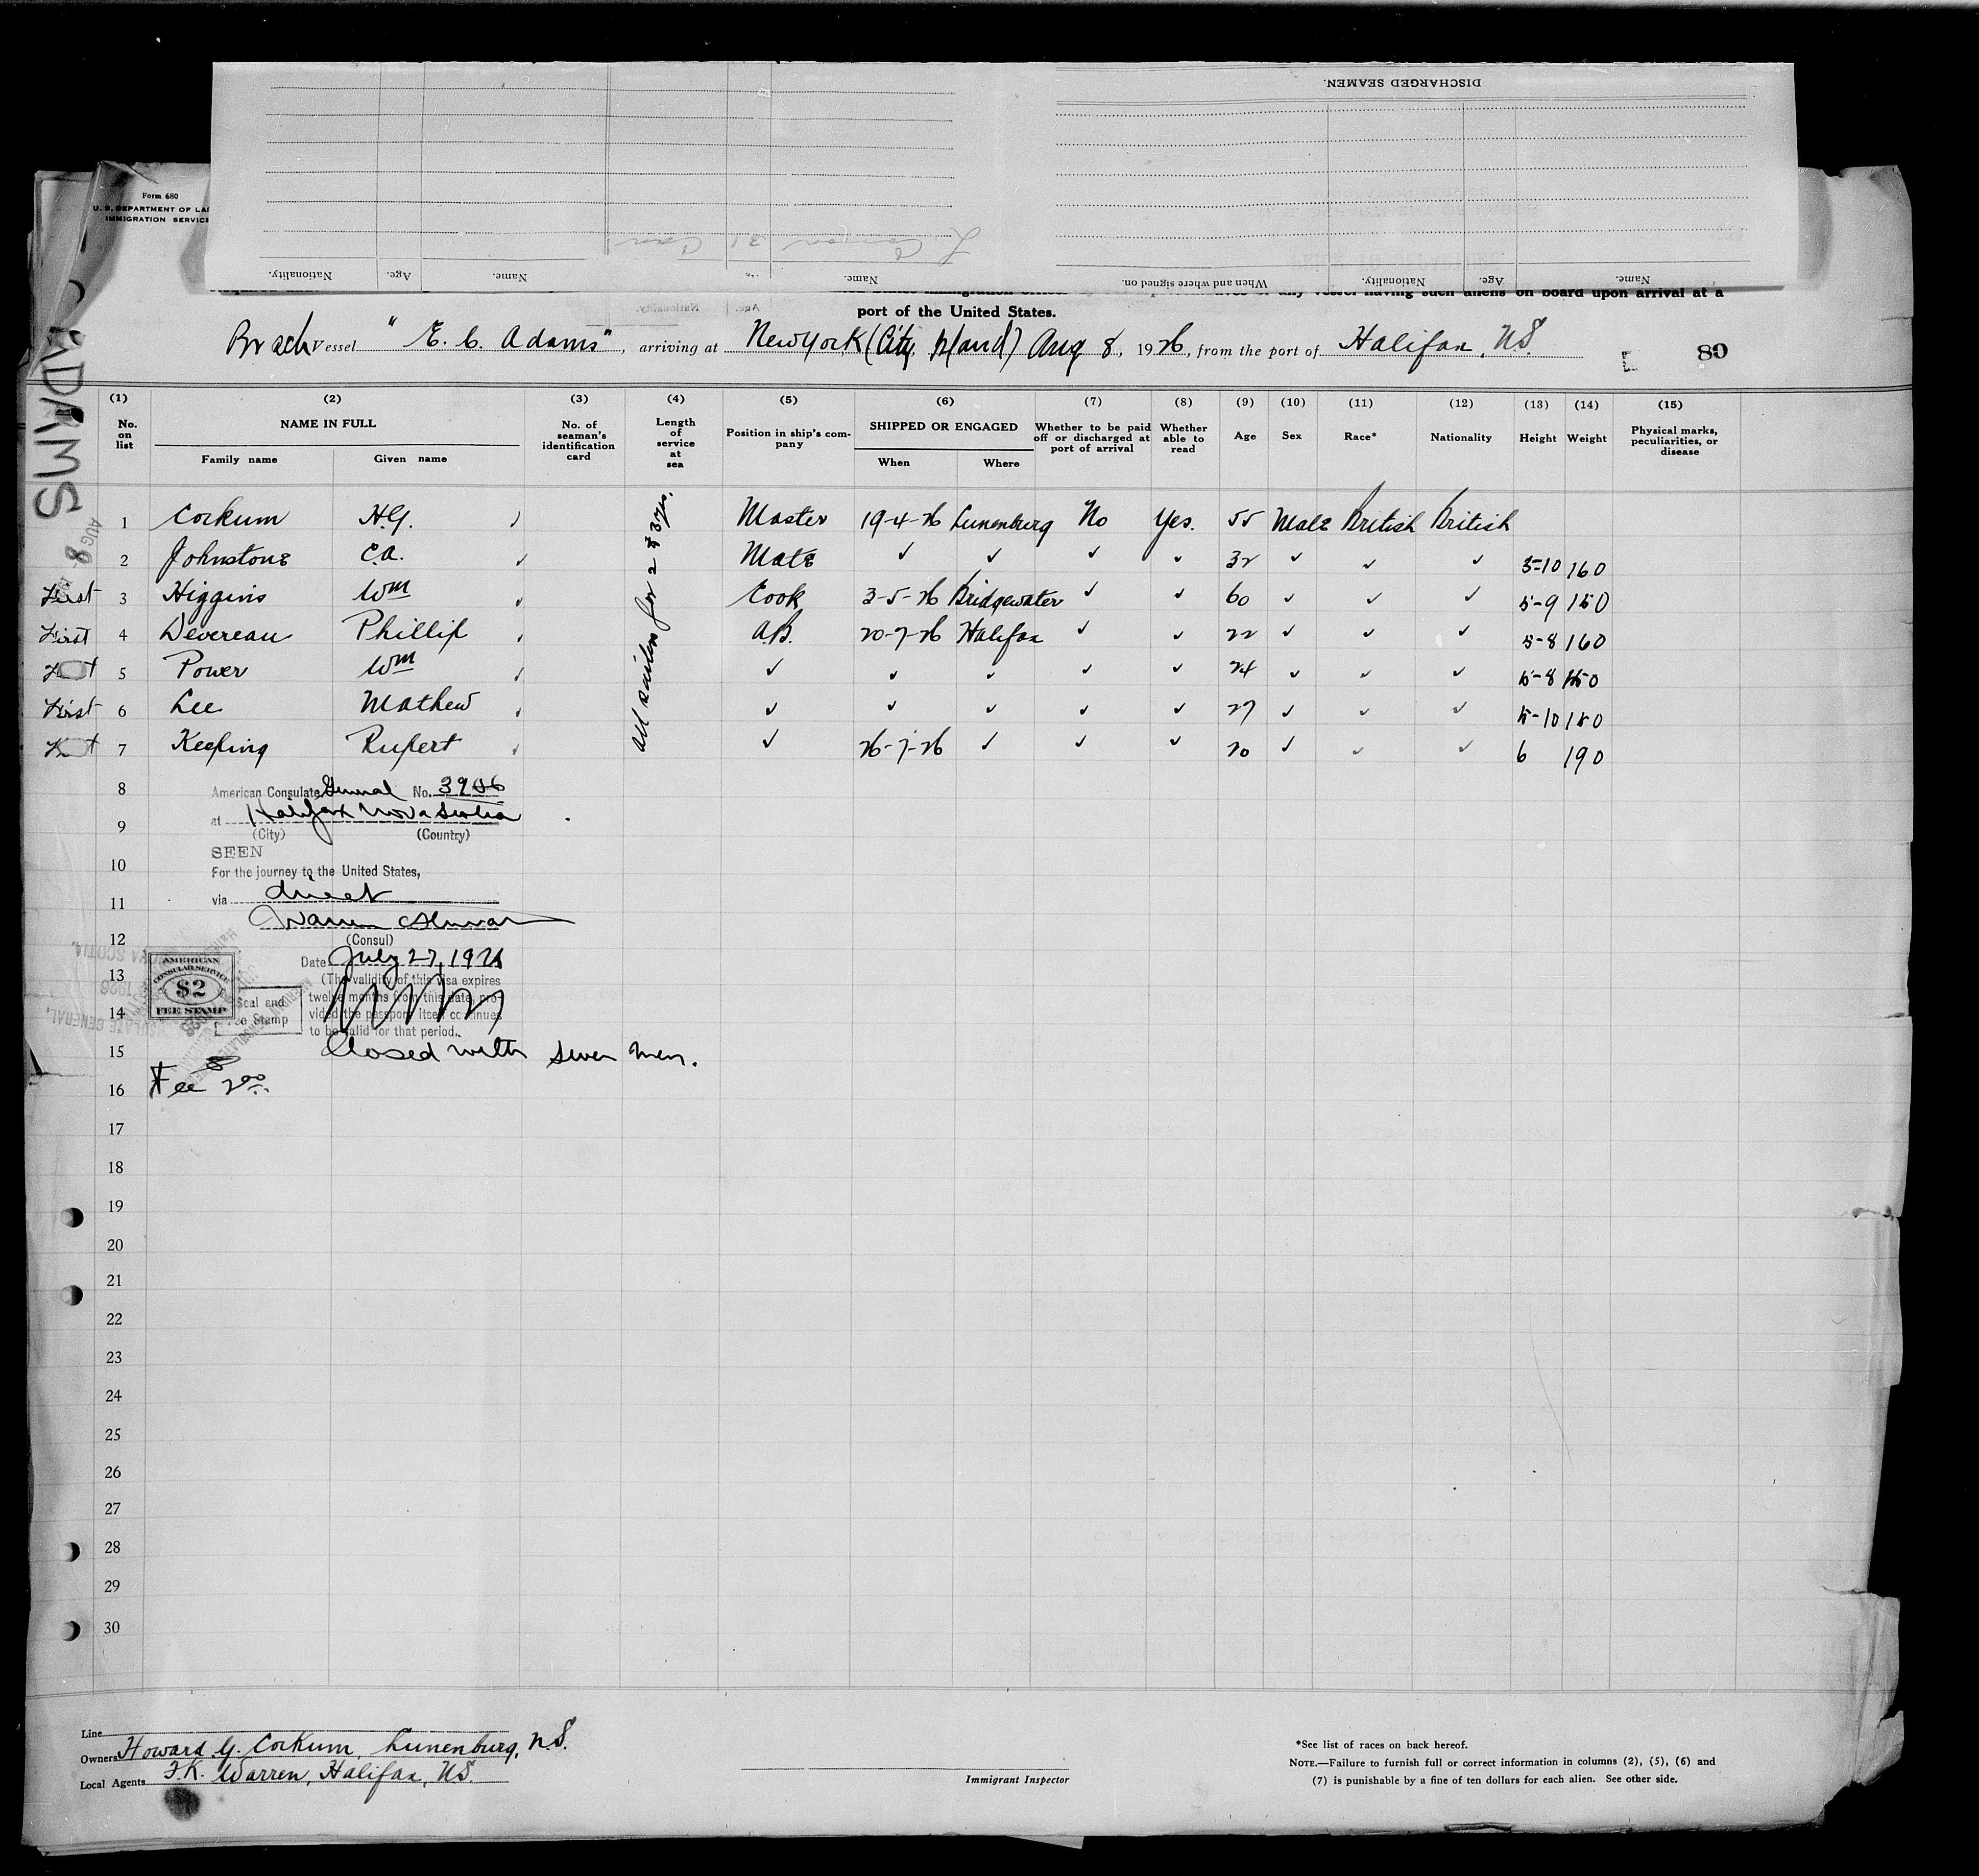 DISCHARGED SEAMEN.
Nationality. Age. Name. Name. When and where signed on. Nationality. Age. Name.
Form 680
U. S. DEPARTMENT OF LA
IMMIGRATION SERVICE
any vessel having such aliens on board upon arrival at a
port of the United States.
Vessel "E. C. Adams", arriving at New York (City Island) Aug 8, 1926, from the port of Halifax, N.S.
80
ADAMS
AUG 8
(1) (2) (3) (4) (5) (6) (7) (8) (9) (10) (11) (12) (13) (14) (15)
No. on list
NAME IN FULL
Family name Given name
No. of seaman's identification card
Length of service at sea
Position in ship's company
SHIPPED OR ENGAGED
When Where
Whether to be paid off or discharged at port of arrival
Whether able to read
Age Sex Race* Nationality Height Weight
Physical marks, peculiarities, or disease
All sailors for 2 3 yrs.
1 Corkum H.G. ✓ Master 19-4-26 Lunenburg No Yes. 55 Male British British
2 Johnstone C.A. ✓ Mate ✓ ✓ ✓ ✓ 32 ✓ ✓ ✓ 5-10 160
First 3 Higgins Wm ✓ Cook 3-5-26 Bridgewater ✓ ✓ 60 ✓ ✓ ✓ 5-9 150
First 4 Devereau Phillip ✓ A.B. 20-7-26 Halifax ✓ ✓ 22 ✓ ✓ ✓ 5-8 160
5 Power Wm ✓ ✓ ✓ ✓ ✓ ✓ 24 ✓ ✓ ✓ 5-8
First 6 Lee Mathew ✓ ✓ ✓ ✓ ✓ ✓ 27 ✓ ✓ ✓ 5-10 180
7 Keeping Rupert ✓ ✓ 26-7-26 ✓ ✓ ✓ 20 ✓ ✓ ✓ 6 190
8
American Consulate General No. 3906
at Halifax Nova Scotia
9
(City) (Country)
SEEN
10
For the journey to the United States,
11
via direct
12
(Consul)
Date July 27, 1926
13
(The validity of this visa expires
twelve months from this date, pro-
vided the passport itself continues
to be valid for that period.
AMERICAN
CONSULAR SERVICE
$2
FEE STAMP
Seal and
Fee Stamp
14
15
Closed with seven men.
16
Fee 2.00
17
18
19
20
21
22
23
24
25
26
27
28
29
30
Line
Owners Howard G. Corkum, Lunenburg, N.S.
Local Agents F.K. Warren, Halifax, N.S.
Immigrant Inspector
*See list of races on back hereof.
NOTE.—Failure to furnish full or correct information in columns (2), (5), (6) and
(7) is punishable by a fine of ten dollars for each alien. See other side.